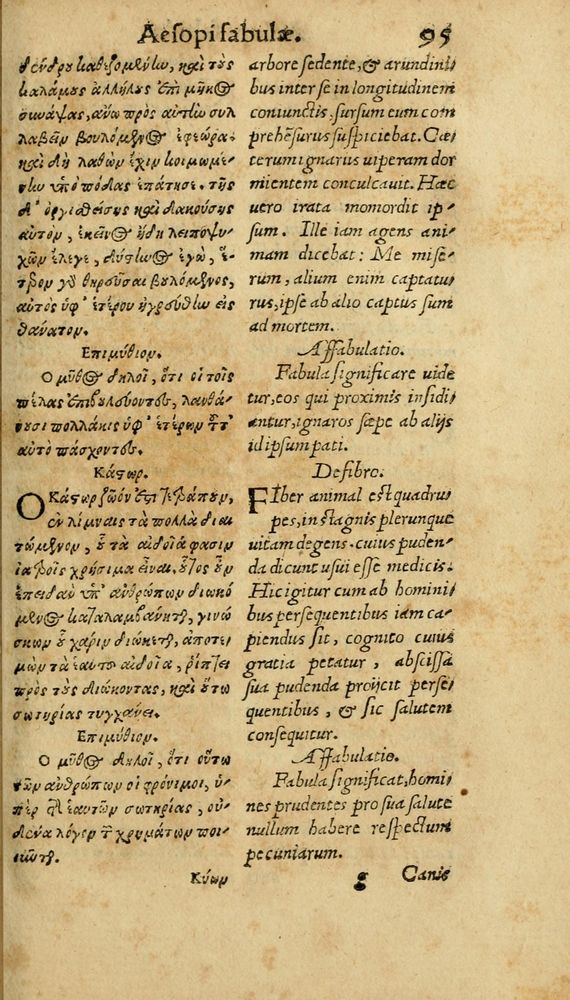 Aesopi fabulæ. 95
δένδρου καθεζομένην, καὶ τοὺς
καλάμους ἀλλήλοις ἐπὶ μῆκος
συνάψας, ἄνω πρὸς αὐτὴν συλ
λαβεῖν βουλόμενος ἐφεώρα.
καὶ δὴ λαθὼν ἔχιν κοιμωμέ-
νην ὑπὸ πόδας ἐπάτησε. τῆς
δ' ὀργισθείσης καὶ δακούσης
αὐτὸν, ἐκεῖνος ἤδη λειποψυ-
χῶν ἔλεγε, δύστηνος ἐγὼ, ἕ-
τερον γὰρ θηρεῦσαι βουλόμενος,
αὐτὸς ὑφ' ἑτέρου ἠγρεύθην εἰς
θάνατον.
Επιμύθιον.
Ο μῦθος δηλοῖ, ὅτι οἱ τοῖς
πέλας ἐπιβουλεύοντες, λανθά-
νουσι πολλάκις ὑφ' ἑτέρων τοῦτ'
αὐτὸ πάσχοντες.
Κάστωρ.
Ο Κάστωρ ζῶόν ἐστι τετράπουν,
ἐν λίμναις τὰ πολλὰ διαι
τώμενον, οὗ τὰ αἰδοῖά φασιν
ἰατροῖς χρήσιμα εἶναι, οὗτος οὖν
ἐπειδὰν ὑπ' ἀνθρώπων διωκό
μενος καταλαμβάνηται, γινώ
σκων οὗ χάριν διώκεται, ἀποτε
μὼν τὰ ἑαυτοῦ αἰδοῖα, ῥίπτει
πρὸς τοὺς διώκοντας, καὶ οὕτω
σωτηρίας τυγχάνει.
Επιμύθιον.
Ο μῦθος δηλοῖ, ὅτι οὕτω
τῶν ἀνθρώπων οἱ φρόνιμοι, ὑ-
πὲρ τῆς ἑαυτῶν σωτηρίας, οὐ-
δένα λόγον τῶν χρημάτων ποι-
οῦνται.
Κύων
arbore sedente, & arundini
bus inter se in longitudinem
coniunctis, sursum eum com
prehēsurus suspiciebat. Cæ
terum ignarus uiperam dor
mientem conculcauit. Hæc
uero irata momordit ip-
sum. Ille iam agens ani-
mam dicebat: Me mise-
rum, alium enim captatu
rus, ipse ab alio captus sum
ad mortem.
Affabulatio.
Fabula significare uide
tur, eos qui proximis insidi
antur, ignaros sæpe ab alijs
id ipsum pati.
De fibro.
FIber animal est quadru
pes, in stagnis plerunque
uitam degens. cuius puden-
da dicunt usui esse medicis.
Hic igitur cum ab homini
bus persequentibus iam ca-
piendus sit, cognito cuius
gratia petatur, abscissa
sua pudenda proijcit perse
quentibus, & sic salutem
consequitur.
Affabulatio.
Fabula significat, homi
nes prudentes pro sua salute
nullum habere respectum
pecuniarum.
g Canis